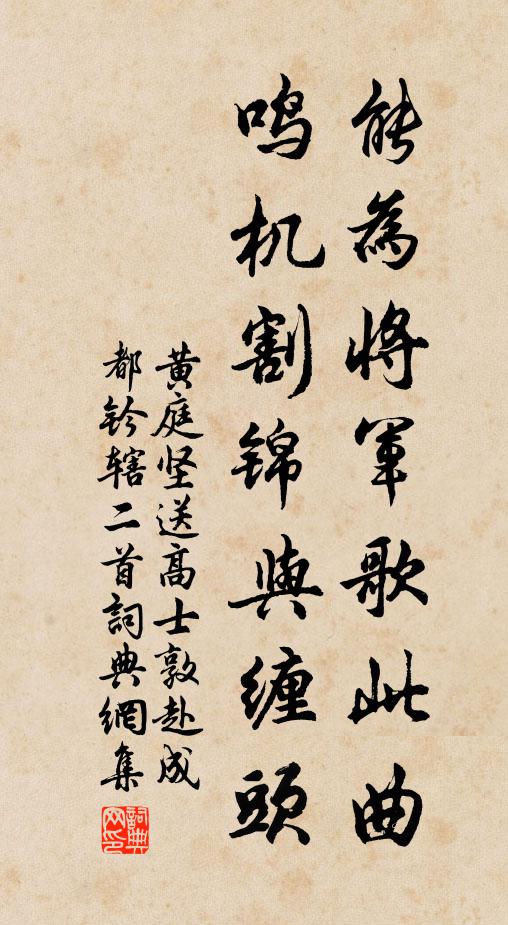 能為將軍歌此曲
鸣机割锦與缠頭
黄庭坚送高士敦赴成
都钤辖二首詞典網集
詞典网印